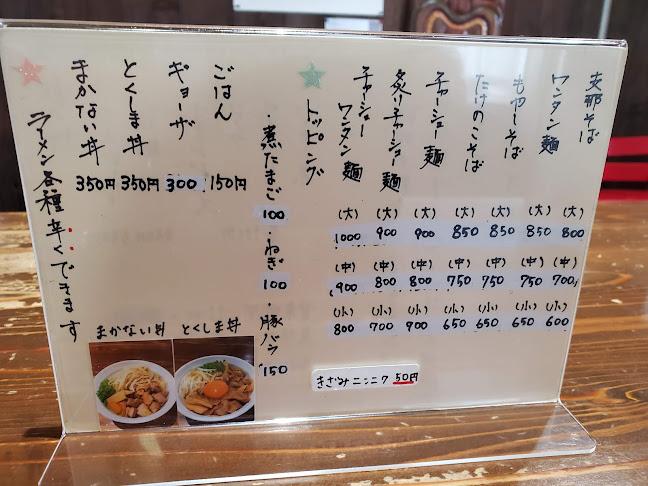 支那そば (大) 800 (中) 700 (小) 600
ワンタン麺 (大) 850 (中) 750 (小) 650
もやしそば (大) 850 (中) 750 (小) 650
たけのこそば (大) 850 (中) 750 (小) 650
チャーシュー麺 (大) 900 (中) 800 (小) 900
炙りチャーシュー麺 (大) 900 (中) 800 (小) 700
チャーシュー
ワンタン麺 (大) 1000 (中) 900 (小) 800
きざみニンニク 50円
トッピング
・煮たまご 100 ・ねぎ 100 ・豚バラ 150
ごはん 150円
ギョーザ 300
とくしま丼 350円
まかない丼 350円
ラーメン各種辛くできます
まかない丼 とくしま丼